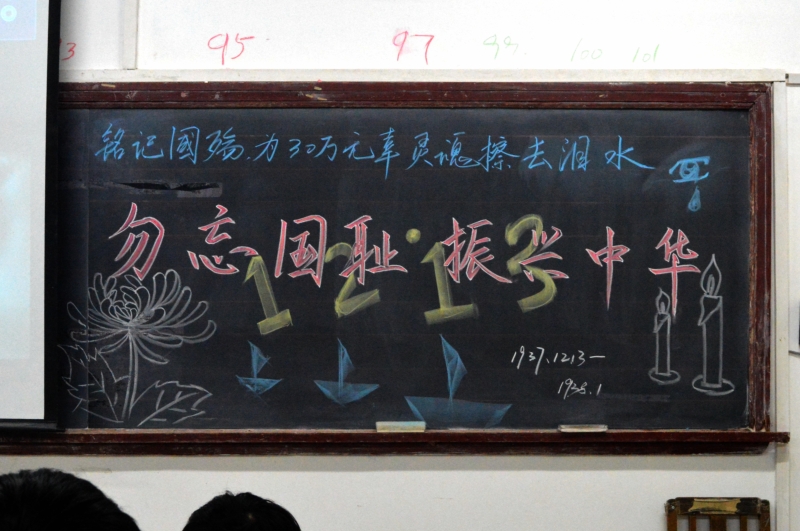 95 97 99 100 101
铭记国殇,为30万无辜灵魂擦去泪水
勿忘国耻 振兴中华
12·13
1937.1213—
1938.1